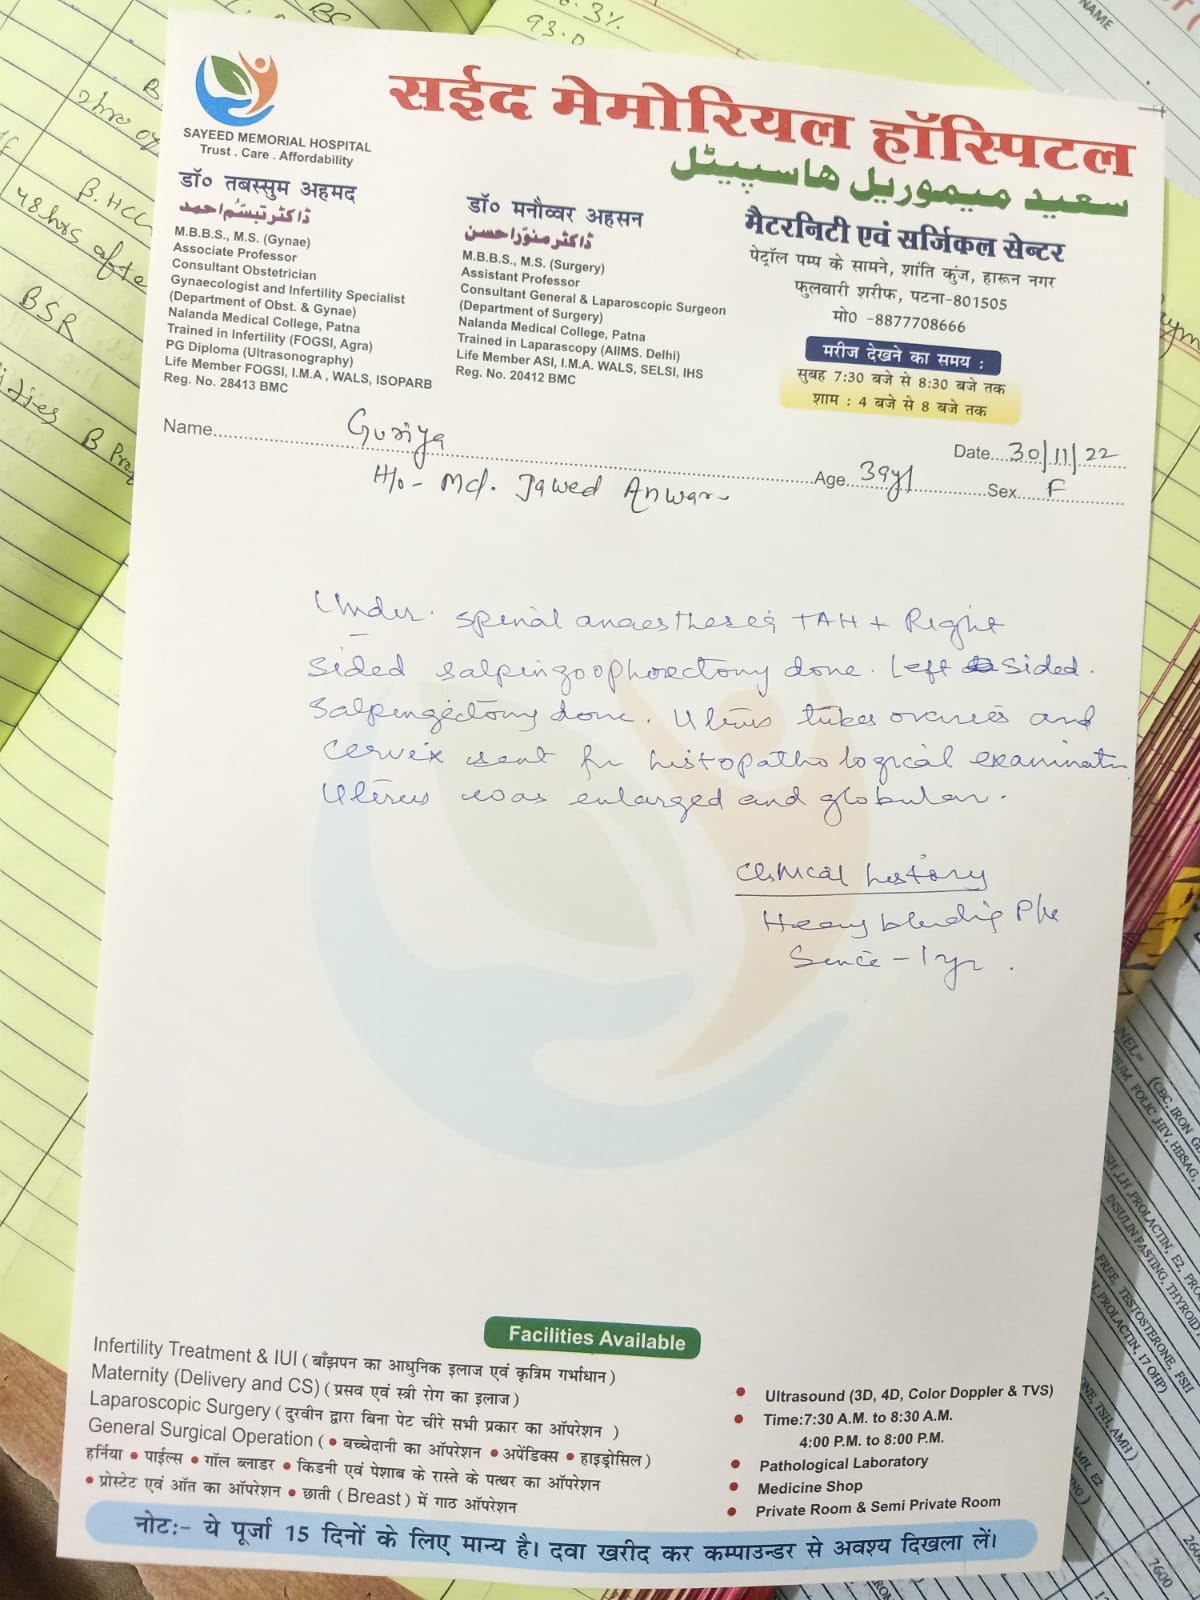 सईद मेमोरियल हॉस्पिटल
سعید میموریل ہاسپیٹل
SAYEED MEMORIAL HOSPITAL
Trust . Care . Affordability
डॉ० तबस्सुम अहमद
ڈاکٹر تبسّم احمد
M.B.B.S., M.S. (Gynae)
Associate Professor
Consultant Obstetrician
Gynaecologist and Infertility Specialist
(Department of Obst. & Gynae)
Nalanda Medical College, Patna
Trained in Infertility (FOGSI, Agra)
PG Diploma (Ultrasonography)
Life Member FOGSI, I.M.A , WALS, ISOPARB
Reg. No. 28413 BMC
डॉ० मनौव्वर अहसन
ڈاکٹر منوّر احسن
M.B.B.S., M.S. (Surgery)
Assistant Professor
Consultant General & Laparoscopic Surgeon
(Department of Surgery)
Nalanda Medical College, Patna
Trained in Laparascopy (AIIMS. Delhi)
Life Member ASI, I.M.A. WALS, SELSI, IHS
Reg. No. 20412 BMC
मैटरनिटी एवं सर्जिकल सेन्टर
पेट्रॉल पम्प के सामने, शांति कुंज, हारून नगर
फुलवारी शरीफ, पटना-801505
मो० -8877708666
मरीज देखने का समय :
सुबह 7:30 बजे से 8:30 बजे तक
शाम : 4 बजे से 8 बजे तक
Name Guriya Age 39yr Date 30/11/22
H/o - Md. Jawed Anwar Sex F
Under spinal anaesthesia TAH + Right
sided salpingoophorectomy done. Left sided
salpingectomy done. Uterus tubes ovaries and
cervix sent for histopathological examinatn
Uterus was enlarged and globular.
Clinical history
Heavy bleeding P/v
Since - 1 yr.
Facilities Available
Infertility Treatment & IUI ( बाँझपन का आधुनिक इलाज एवं कृत्रिम गर्भाधान )
Maternity (Delivery and CS) ( प्रसव एवं स्त्री रोग का इलाज )
Laparoscopic Surgery ( दुरवीन द्वारा बिना पेट चीरे सभी प्रकार का ऑपरेशन )
General Surgical Operation ( • बच्चेदानी का ऑपरेशन • अपेंडिक्स • हाइड्रोसिल )
हर्निया • पाईल्स • गॉल ब्लाडर • किडनी एवं पेशाब के रास्ते के पत्थर का ऑपरेशन
• प्रोस्टेट एवं ऑत का ऑपरेशन • छाती ( Breast ) में गाठ ऑपरेशन
• Ultrasound (3D, 4D, Color Doppler & TVS)
• Time:7:30 A.M. to 8:30 A.M.
4:00 P.M. to 8:00 P.M.
• Pathological Laboratory
• Medicine Shop
• Private Room & Semi Private Room
नोटः- ये पूर्जा 15 दिनों के लिए मान्य है। दवा खरीद कर कम्पाउन्डर से अवश्य दिखला लें।
93.0
B. HCG
48hrs after
BSR
NAME
(CBC, IRON
FOLIC, HIV, HBSAG,
LH, PROLACTIN, E2,
INSULIN FASTING, THYROID
FREE TESTOSTERONE, FSH
PROLACTIN, 17 OHP)
TSH, AMH )
7600